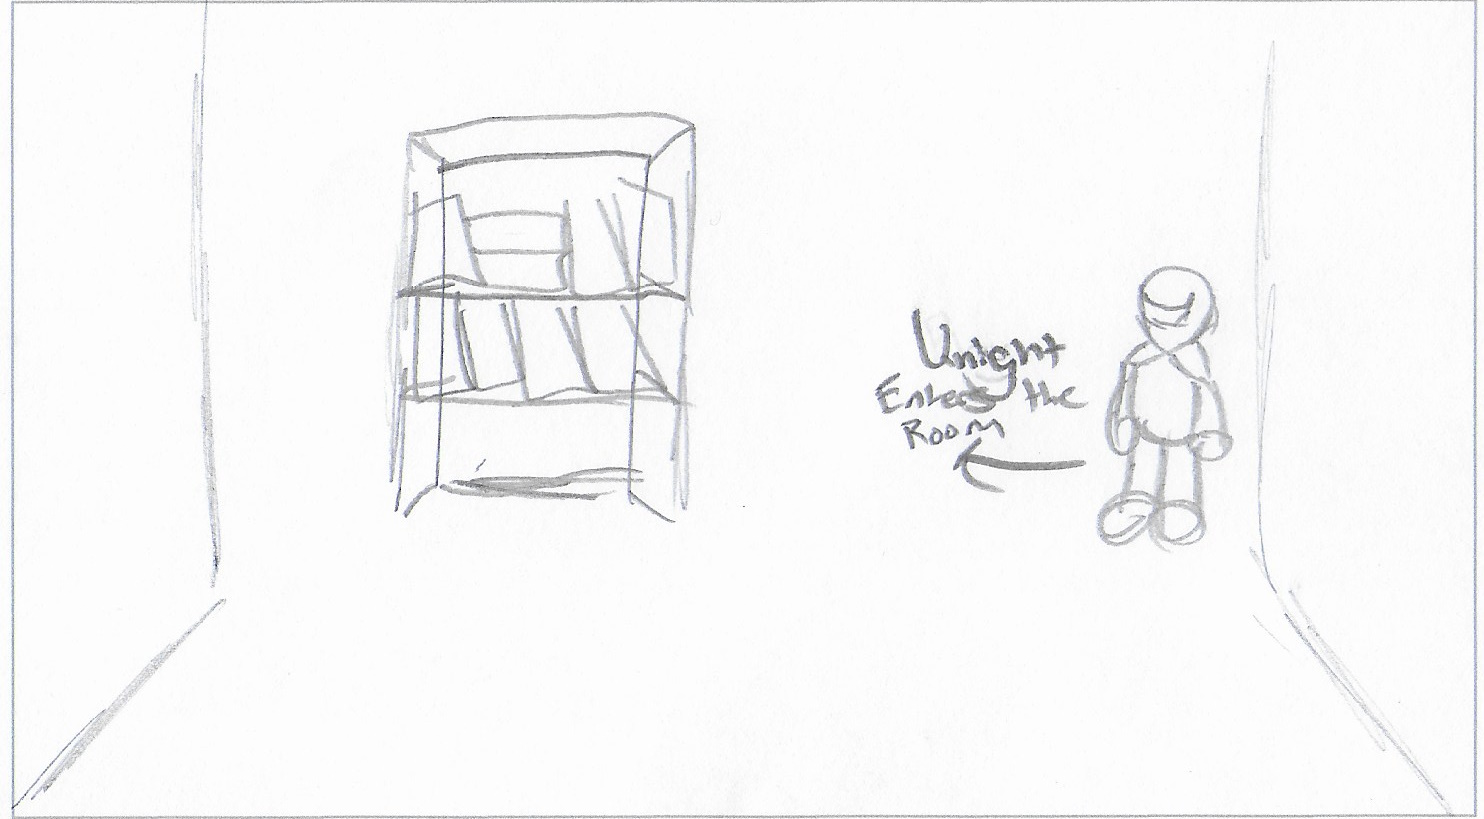 Unight
Enters the
Room